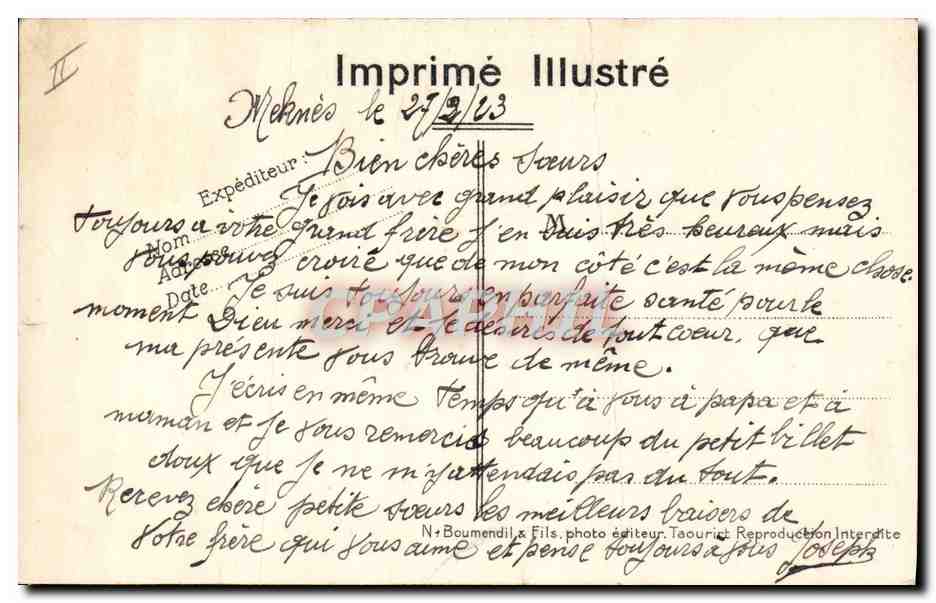 II
Imprimé Illustré
Meknès le 27/2/23
Expéditeur :
Bien chères sœurs
Je vois avec grand plaisir que vous pensez
toujours a votre grand frère J'en suis très heureux mais
M
Nom
vous pouvez croire que de mon côté c'est la même chose.
Adresse
Je suis toujours en parfaite santé pour le
Date
moment Dieu merci et je désires de tout coeur, que
ma présente vous trouve de même.
J'écris en même temps qu'à vous à papa et à
maman et je vous remercie beaucoup du petit billet
doux que je ne m'y attendais pas du tout.
Recevez chère petite sœurs les meilleurs baisers de
N. Boumendil & Fils. photo éditeur. Taourirt Reproduction Interdite
votre frère qui vous aime et pense toujours à vous Joseph